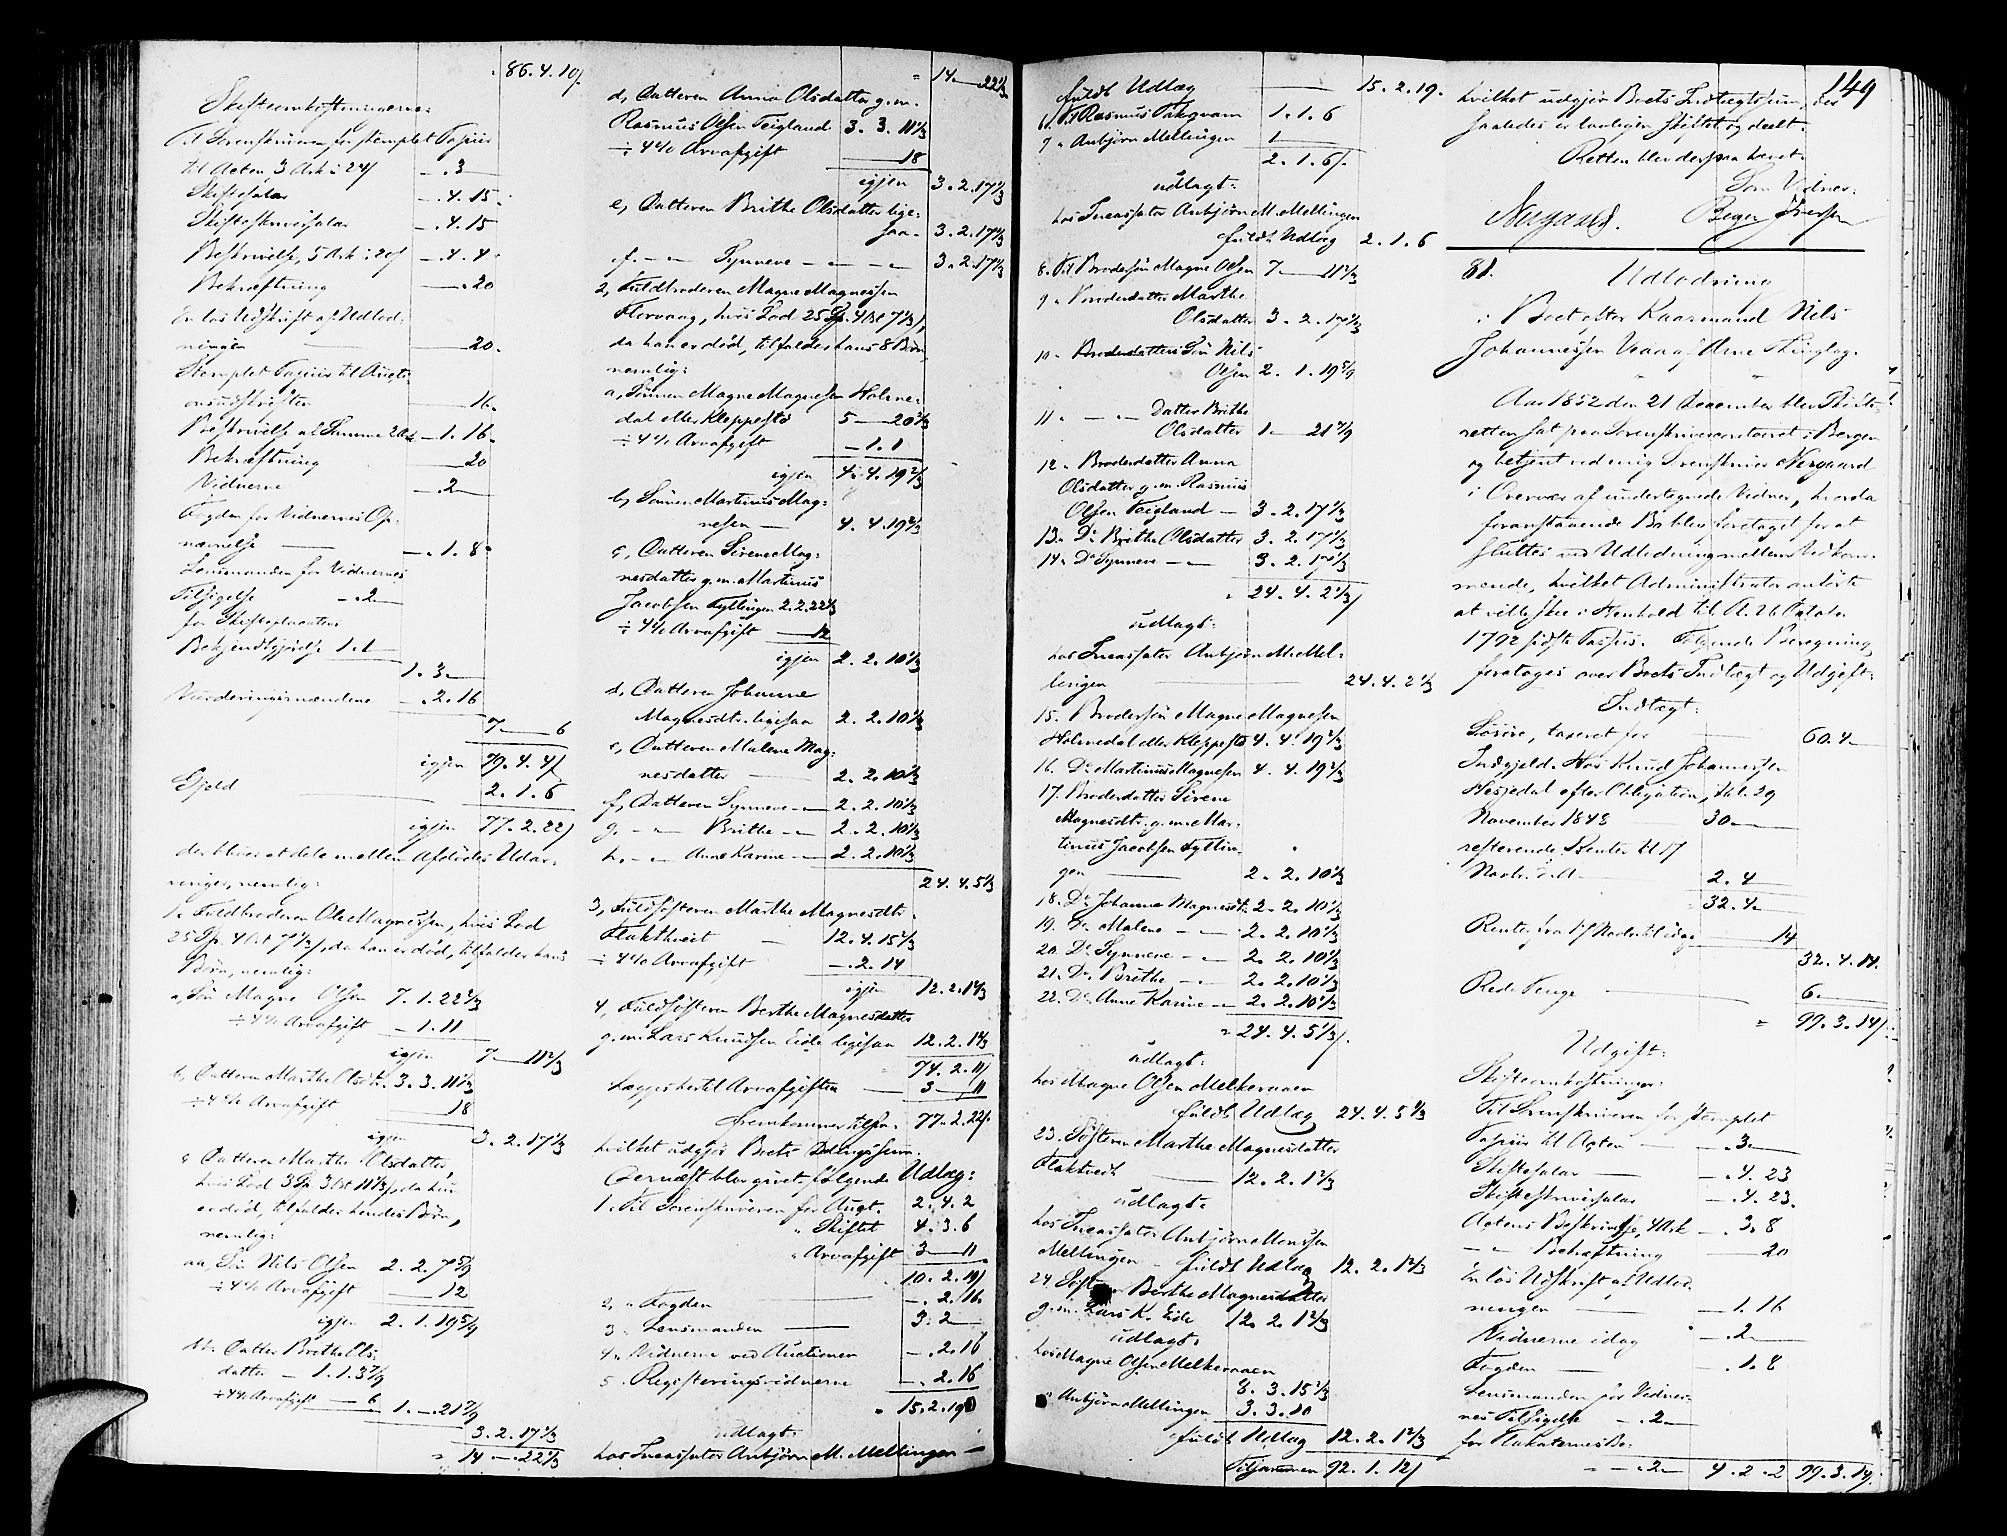 86.4.10/.
Skifteomkostningerne:
Til Sorenskriveren for stemplet Papiir
til Acten, 3 Ark à 24/ -.3-
Skiftesalar -.4.15.
Skifteskriversalar -.4.15
Beskrivelse, 5 Ark à 20/ -.4.4.
Bekræftning -.20
En løs Udskrift af Udlod-
ningen -20.
Stemplet Papiir til Aucti-
onsudskriften -16.
Beskrivelse af Samme 2 Ark -.1.16.
Bekræftning -20
Vidnerne -.2-
Fogden for Vidnernes Op-
nævnelse -.1.8.
Lensmanden for Vidnernes
Tilsigelse -.2-
for Skifteplacatens
Bekjendtgjørelse 1.1-
1.3-
Vurderingsmændene -.2.16
7-6
igjen 79.4.4/
Gjeld 2.1.6
igjen 77.2.22/
der bliver at dele mellem Afdødes Udar-
vinger, nemlig:
1. Fuldbroderen Ole Magnessen, hvis Lod
25 Sp. 4 Ort 7 1/3/, da han er død, tilfalder hans
Børn, nemlig:
a, Søn Magne Olsen 7.1.22 2/3
÷ 4% Arvafgift -.1.11
igjen 7-11 2/3
b, Datteren Marthe Olsdtr. 3.3.11 1/3
÷ 4% Arvafgift 18
igjen 3.2.17 1/3
c Datteren Marthe Olsdatter,
hvis Lod 3 Sp 3 Ort 11 1/3/, da hun
er død, tilfalder hendes Børn,
nemlig:
aa, Søn Nils Olsen 2.2.7 5/9
÷ 4% Arvafgift 12
igjen 2.1.19 5/9
bb. Datter Brithe Ols-
datter - 1.1.3 7/9
÷ 4% Arvafgift -6 1.-.21 7/9
3.2.17 1/3
" 14-.22 1/3
" 14-22 1/3
d, Datteren Anna Olsdatter g.m.
Rasmus Olsen Teigland 3.3.11 1/3
÷ 4% Arvafgift 18
igjen 3.2.17 1/3
e, Datteren Brithe Olsdatter lige-
saa. 3.2.17 1/3
f. - " - Synneve - " - " - 3.2.17 1/3
2, Fuldbroderen Magne Magnessen
Florvaag, hvis Lod 25 Sp. 4 Ort 7 1/3/,
da han er død, tilfalder hans 8 Børn
nemlig:
a, Sønnen Magne Magnesen Holme-
dal eller Kleppestø 5-20 2/3
÷ 4% Arvafgift -1.1
igjen 4.4.19 2/3
b, Sønnen Martinus Mag-
nesen - 4.4.19 2/3
c, Datteren Sirene Mag-
nesdatter g.m. Martinus
Jacobsen Tyllingen 2.2.22 1/3
÷ 4% Arvafgift 12
igjen 2.2.10 1/3
d, Datteren Johanne
Magnesdtr. ligesaa 2.2.10 1/3
e, Datteren Malene Mag-
nesdatter - 2.2.10 1/3
f, Datteren Synneve - " - 2.2.10 1/3
g. - " - Brithe - " - 2.2.10 1/3
h. - " - Anne Karine - 2.2.10 1/3
24.4.5 1/3
3, Fuldsøsteren Marthe Magnesdtr.
Flakthveit - 12.4.15 1/3
÷ 4% Arvafgift -.2.14
igjen 12.2.1 2/3
4, Fuldsøsteren Berthe Magnesdatter
g.m. Lars Knudsen Eide ligesaa 12.2.1 2/3
74.2.11/
Lægges hertil Arvafgiften - 3-11
fremkommer tilsa. 77.2.22/.
hvilket udgjør Boets Delingssum.
Dernæst blev givet følgende Udlæg:
1. Til Sorenskriveren for Auct. 2.4.2
" Skiftet 4.3.6
" Arvafgift 3-11
10.2.19/
2, " Fogden - -.2.16.
3 " Lensmanden - 3.2-
4 " Vidnerne ved Auctionen -.2.16
5. Registeringsvidnerne -.2.16
" 15.2.19
udlagt:
hos Incassator Anbjørn M. Mellingen -
149
fuldt Udlæg - 15.2.19.
6. Til Rasmus Takqvam 1.1.6
7 " Anbjørn Mellingen 1-
2.1.6/.
udlagt:
hos Incassator Anbjørn M. Mellingen
fuldt Udlæg 2.1.6
8. Til Brodersøn Magne Olsen 7-11 2/3
9 " Broderdatter Marthe
Olsdatter 3.2.17 1/3
10 " Broderdatters Søn Nils
Olsen 2.1.19 5/9
11 " - " - Datter Brithe
Olsdatter 1-21 7/9
12 " Broderdatter Anna
Olsdatter g.m. Rasmus
Olsen Teigland - 3.2.17 1/3
13 " Do Brithe Olsdatter 3.2.17 1/3
14 " Do Synneve - " - 3.2.17 1/3
" 24.4.2 1/3/
udlagt:
hos Incassator Anbjørn M. Mel-
lingen - 24.4.2 1/3
15. Brodersøn Magne Magnesen
Holmedal eller Kleppestø 4.4.19 2/3
16. Do Martinus Magnesen 4.4.19 2/3
17. Broderdatter Sirene
Magnesdtr. g.m. Mar-
tinus Jacobsen Tyllin-
gen - 2.2.10 1/3
18. Do Johanne Magnesdtr. 2.2.10 1/3
19. Do Malene - " - 2.2.10 1/3
20. Do Synneve - " - 2.2.10 1/3
21. Do Brithe - " - 2.2.10 1/3
22. Do Anne Karine - " - 2.2.10 1/3
" 24.4.5 1/3/.
udlagt:
hos Magne Olsen Melkeraaen
fuldt Udlæg 24.4.5 1/3
23. Søsteren Marthe Magnesdatter
Flaktvedt - 12.2.1 2/3
udlagt:
hos Incassator Anbjørn Monssen
Mellingen - fuldt Udlæg 12.2.1 2/3
24. Søsteren Berthe Magnesdatter
g.m. Lars K. Eide 12.2.1 2/3
udlagt:
hos Magne Olsen Melkeraaen
8.3.15 2/3
" Anbjørn Mellingen 3.3.10
fuldt Udlæg 12.2.1 2/3
Tilsammen 92.1.12/
hvilket udgjør Boets Indtægtssum, der
saaledes er lovligen skiftet og deelt.
Retten blev derpaa hævet.
Som Vidner:
Neergaard. Beyer Iversen
81. Udlodning
i Boet efter Kaarmand Nils
Johannessen Veaa af Arne Thinglag.
Aar 1852 den 21 December blev Skifte-
retten sat paa Sorenskrivercontoiret i Bergen
og betjent ved mig Sorenskriver Neergaard
i Overvær af undertegnede Vidner, hvorda
foranstaaende Bo blev foretaget for at
sluttes ved Udlodning mellem Vedkom-
mende, hvilket Administrator anførte
at ville skee i Henhold til Pl. 26 October
1792 sidste Passus. Følgende Beregning
foretages over Boets Indtægt og Udgift:
Indtægt:
Løsøre, taxeret for - 60.4-
Indgjeld: Hos Knud Johannessen
Hesjedal efter Obligation, dat. 29
November 1848 30-
resterende Renter til 17
Novbr. d. A. - 2.4
32.4-
Renter fra 17 Novbr. til idag 14
32.4.14.
Rede Penge - 6-
" 99.3.14/.
Udgift:
Skifteomkostninger:
Til Sorenskriveren for stemplet
Papiir til Acten - -.3-
Skiftesalar - -.4.23
Skifteskriversalar -.4.23.
Actens Beskrivelse, 4 Ark -.3.8
- " - Bekræftning -20
En løs Udskrift af Udlod-
ningen - -.1.16
Vidnerne idag -.2-
Fogden - -.1.8
Lensmanden for Vidner-
nes Tilsigelse -.2-
for Plakaternes Be-
" - -.2- 4.2.2 99.3.14/.